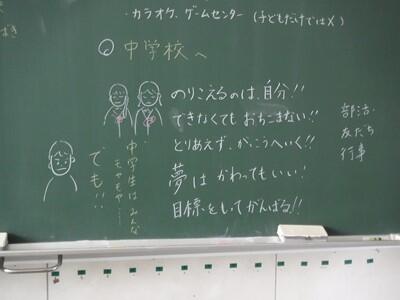 ・カラオケ、ゲームセンター (子どもだけでは×)
○ 中学校へ
のりこえるのは、自分!!
できなくても おちこまない!!
とりあえず、がっこうへいく!!
夢は かわってもいい!
目標をもってがんばる!!
部活・
友だち
行事
中学生は みんな
モヤモヤ・・・
でも!!